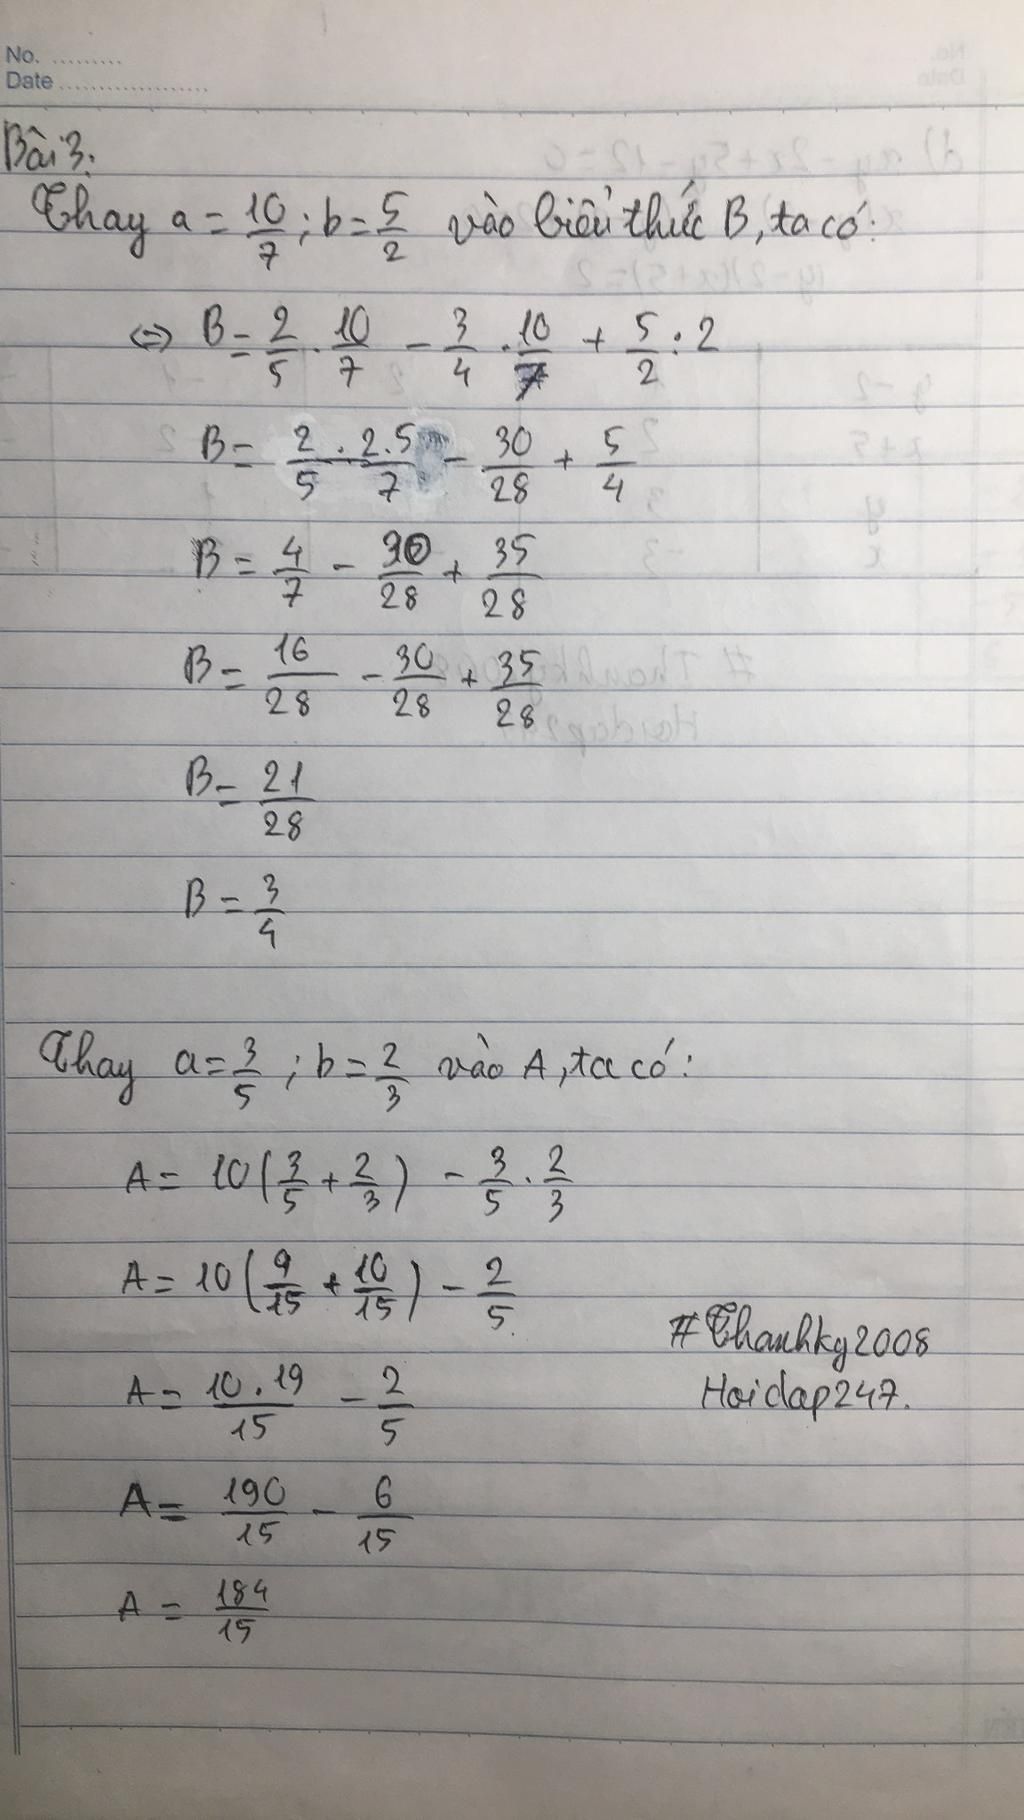 No. .........
Date ....................
Bài 3:
Thay a = 10/7 ; b = 5/2 vào biểu thức B, ta có:
⇔ B = 2/5 . 10/7 - 3/4 . 10/7 + 5/2 : 2
B = 2/5 . 2.5/7 - 30/28 + 5/4
B = 4/7 - 30/28 + 35/28
B = 16/28 - 30/28 + 35/28
B = 21/28
B = 3/4
Thay a = 3/5 ; b = 2/3 vào A, ta có:
A = 10 ( 3/5 + 2/3 ) - 3/5 . 2/3
A = 10 ( 9/15 + 10/15 ) - 2/5
A = 10.19/15 - 2/5
A = 190/15 - 6/15
A = 184/15
#Thanhky2008
Hoidap247.